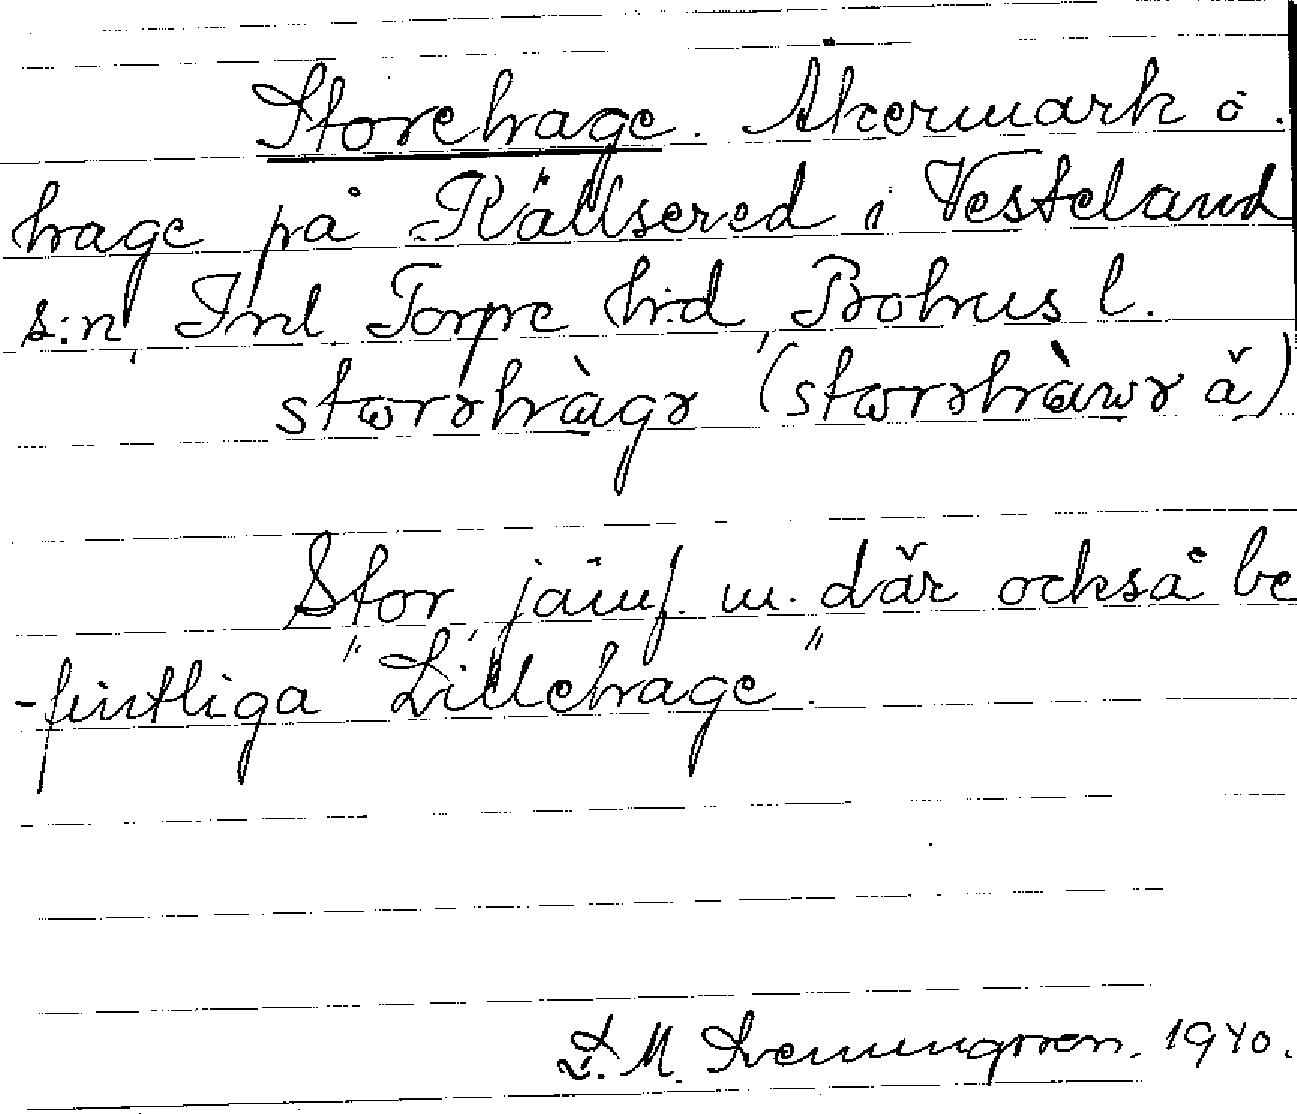 Storehage. Åkermark o.
hage på Källsered i Vesteland
s:n, Inl. Torpe hrd, Bohus l.
storrhàgr (storrhàwr å)
Stor jämf. m. där också be
-fintliga "Lillehage".
F. M. 1940.